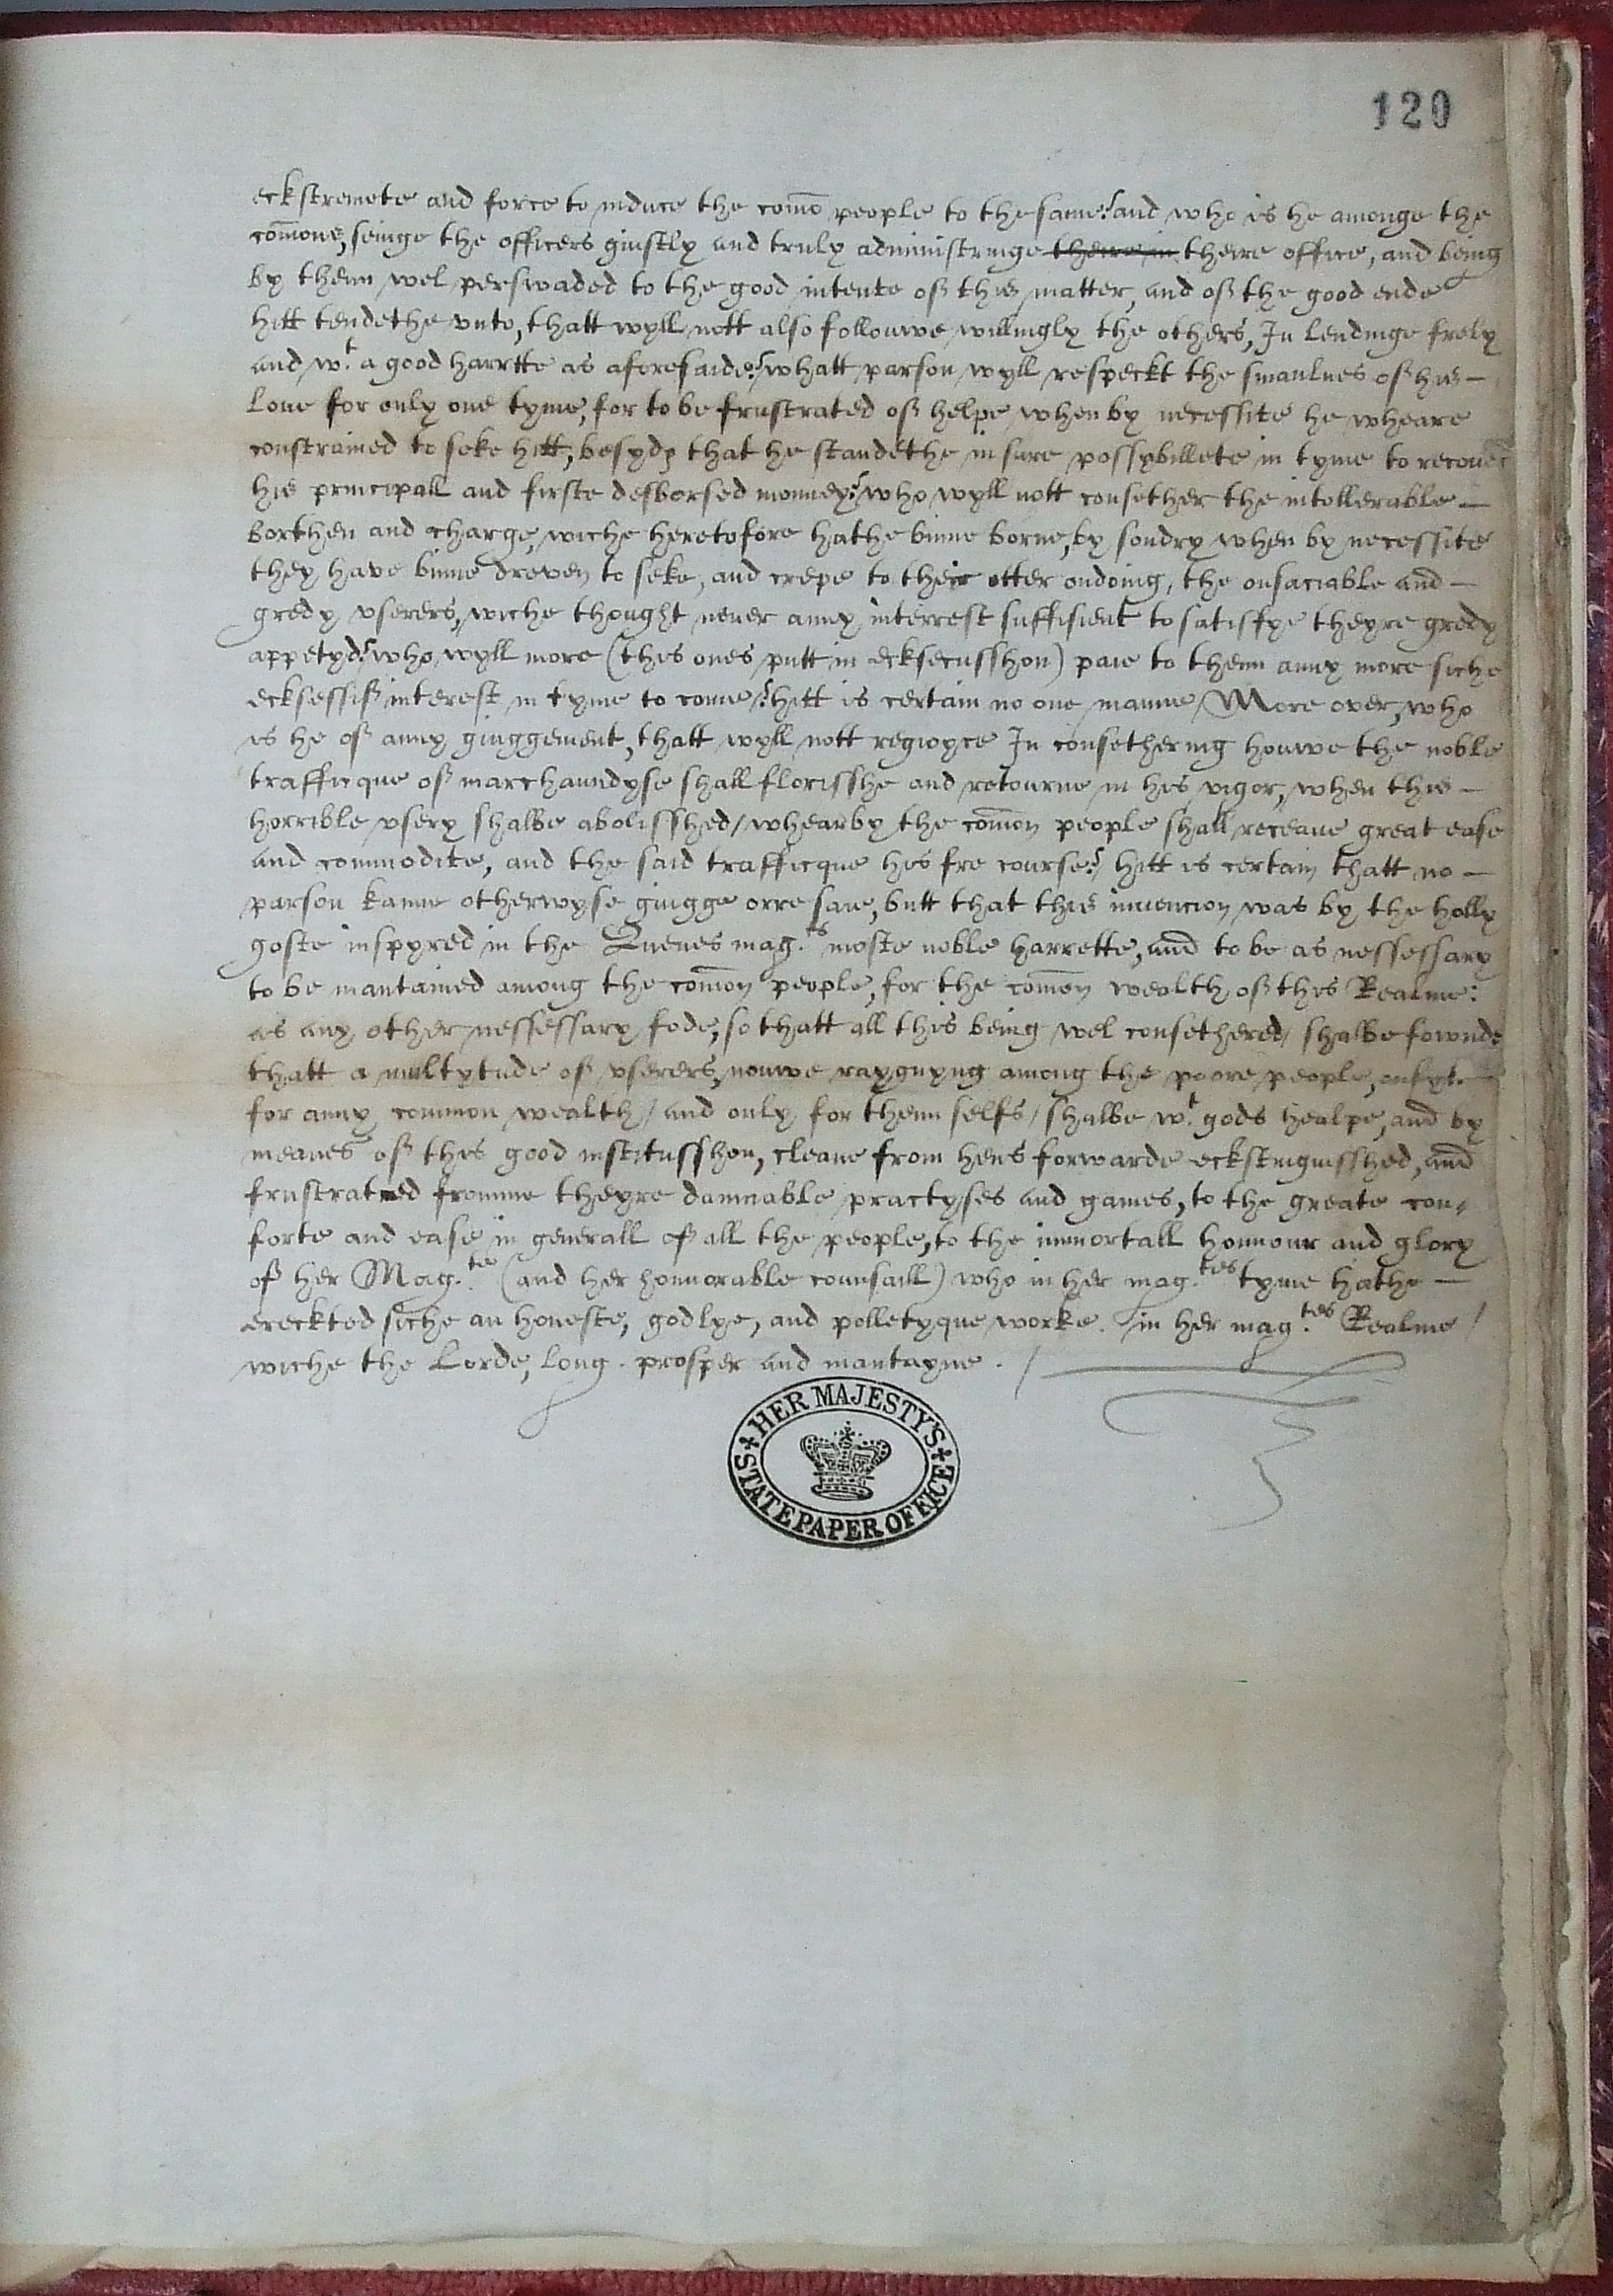 120
eckstremete and force to induce the com̄o people to the same? and who is he amonge the
com̄ons, seinge the officers giustly and truly administringe theire in theire office, and being
by them wel perswaded to the good intente of this matter, and of the good ende
hitt tendethe vnto, thatt wyll nott also follouwe willingly the others, In lendinge frely
and wt. a good harrtte as aforesaide? whatt parson wyll respeckt the smaulnes of his –
lone for only one tyme, for to be frustrated of helpe when by necessite he wheare
constrained to seke hitt, besyds that he standethe in sure possybillete in tyme to recouer
his principall and firste desborsed monney? who wyll nott consether the intollerable –
borthen and charge, wiche heretofore hathe binne borne, by sondry when by necessite
they have binne dreven to seke, and crepe to their otter ondoing, the onsaciable and –
gredy vserers, wiche thought never anny interrest suffisient to satisfye theyre gredy
appetyd? who wyll more (this ones putt in ecksecusshon) paie to them anny more siche
ecksessif interest in tyme to come? hitt is certain no one manne / More over, who
is he of anny giuggement, thatt wyll nott regioyce In consethering houwe the noble
trafficque of marchaundyse shall florisshe and retourne in his vigor, when this –
horrible vsery shalbe abolisshed / whearby the com̄on people shall receaue great ease
and commodite, and the said trafficque his fre course? hitt is certain thatt no –
parson kanne otherwyse giugge orre saie, butt that this inuencion was by the holly
goste inspyred in the Quenes mag.ts moste noble harrette, and to be as nessessary
to be mantained among the com̄on people, for the com̄on wealth of this Realme:
as any other nessessary fode, so thatt all this being wel consethered / shalbe fownde
thatt a multytude of vserers, nouwe raygnyng among the poore people, onfyt –
for anny common wealth / and only for them selfs / shalbe wt. gods healpe, and by
meanes of this good institusshon, cleane from hens forwarde eckstinguisshed, and
frustrated fromme theyre damnable practyses and games, to the greate con-
forte and ease in generall of all the people, to the immortall honnour and glory
of her Mag.te (and her honnorable counsaill) who in her mag.ties tyme hathe –
ereckted siche an honeste, godlye, and polletyque worke. in her mag.ties Realme /
wiche the Lorde, long. prosper and mantayne. /
HER MAJESTY'S
STATE PAPER OFFICE